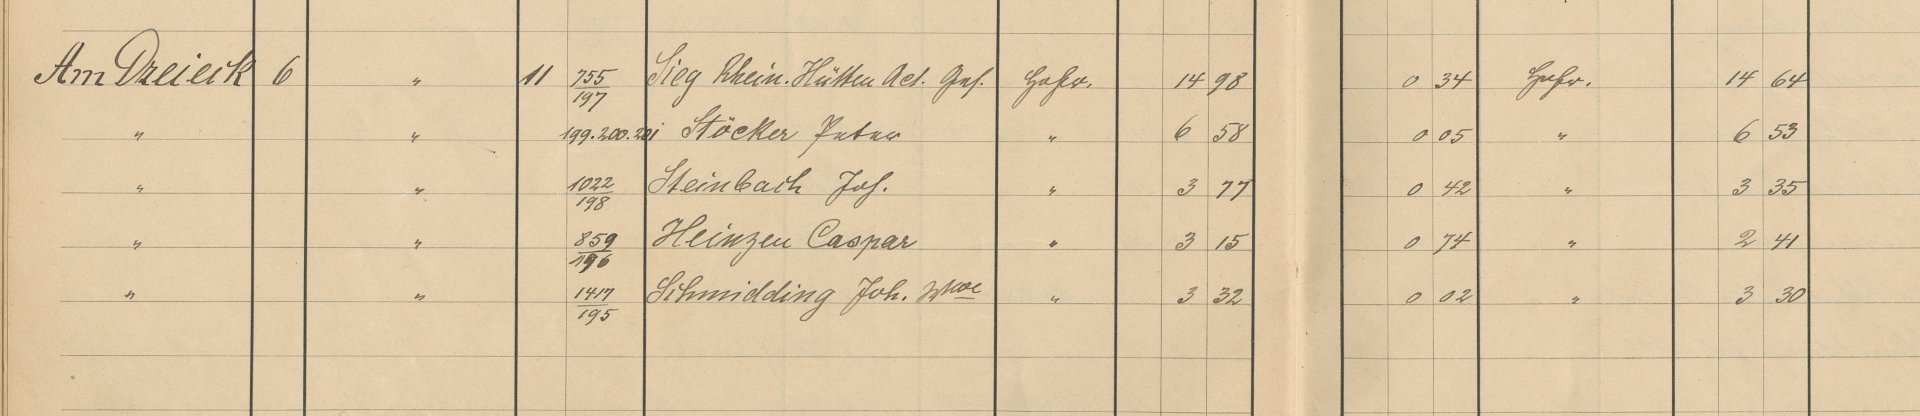 Am Dreieck 6 " 11 755/197 Sieg Rhein. Hütten Act. Ges. Hofr. 14 98 0 34 Hofr. 14 64
" " 199.200.201 Stöcker Peter " 6 58 0 05 " 6 53
" " 1022/198 Steinbach Joh. " 3 77 0 42 " 3 35
" " 859/196 Heinzen Caspar " 3 15 0 74 " 2 41
" " 1417/195 Schmidding Joh. Wwe " 3 32 0 02 " 3 30